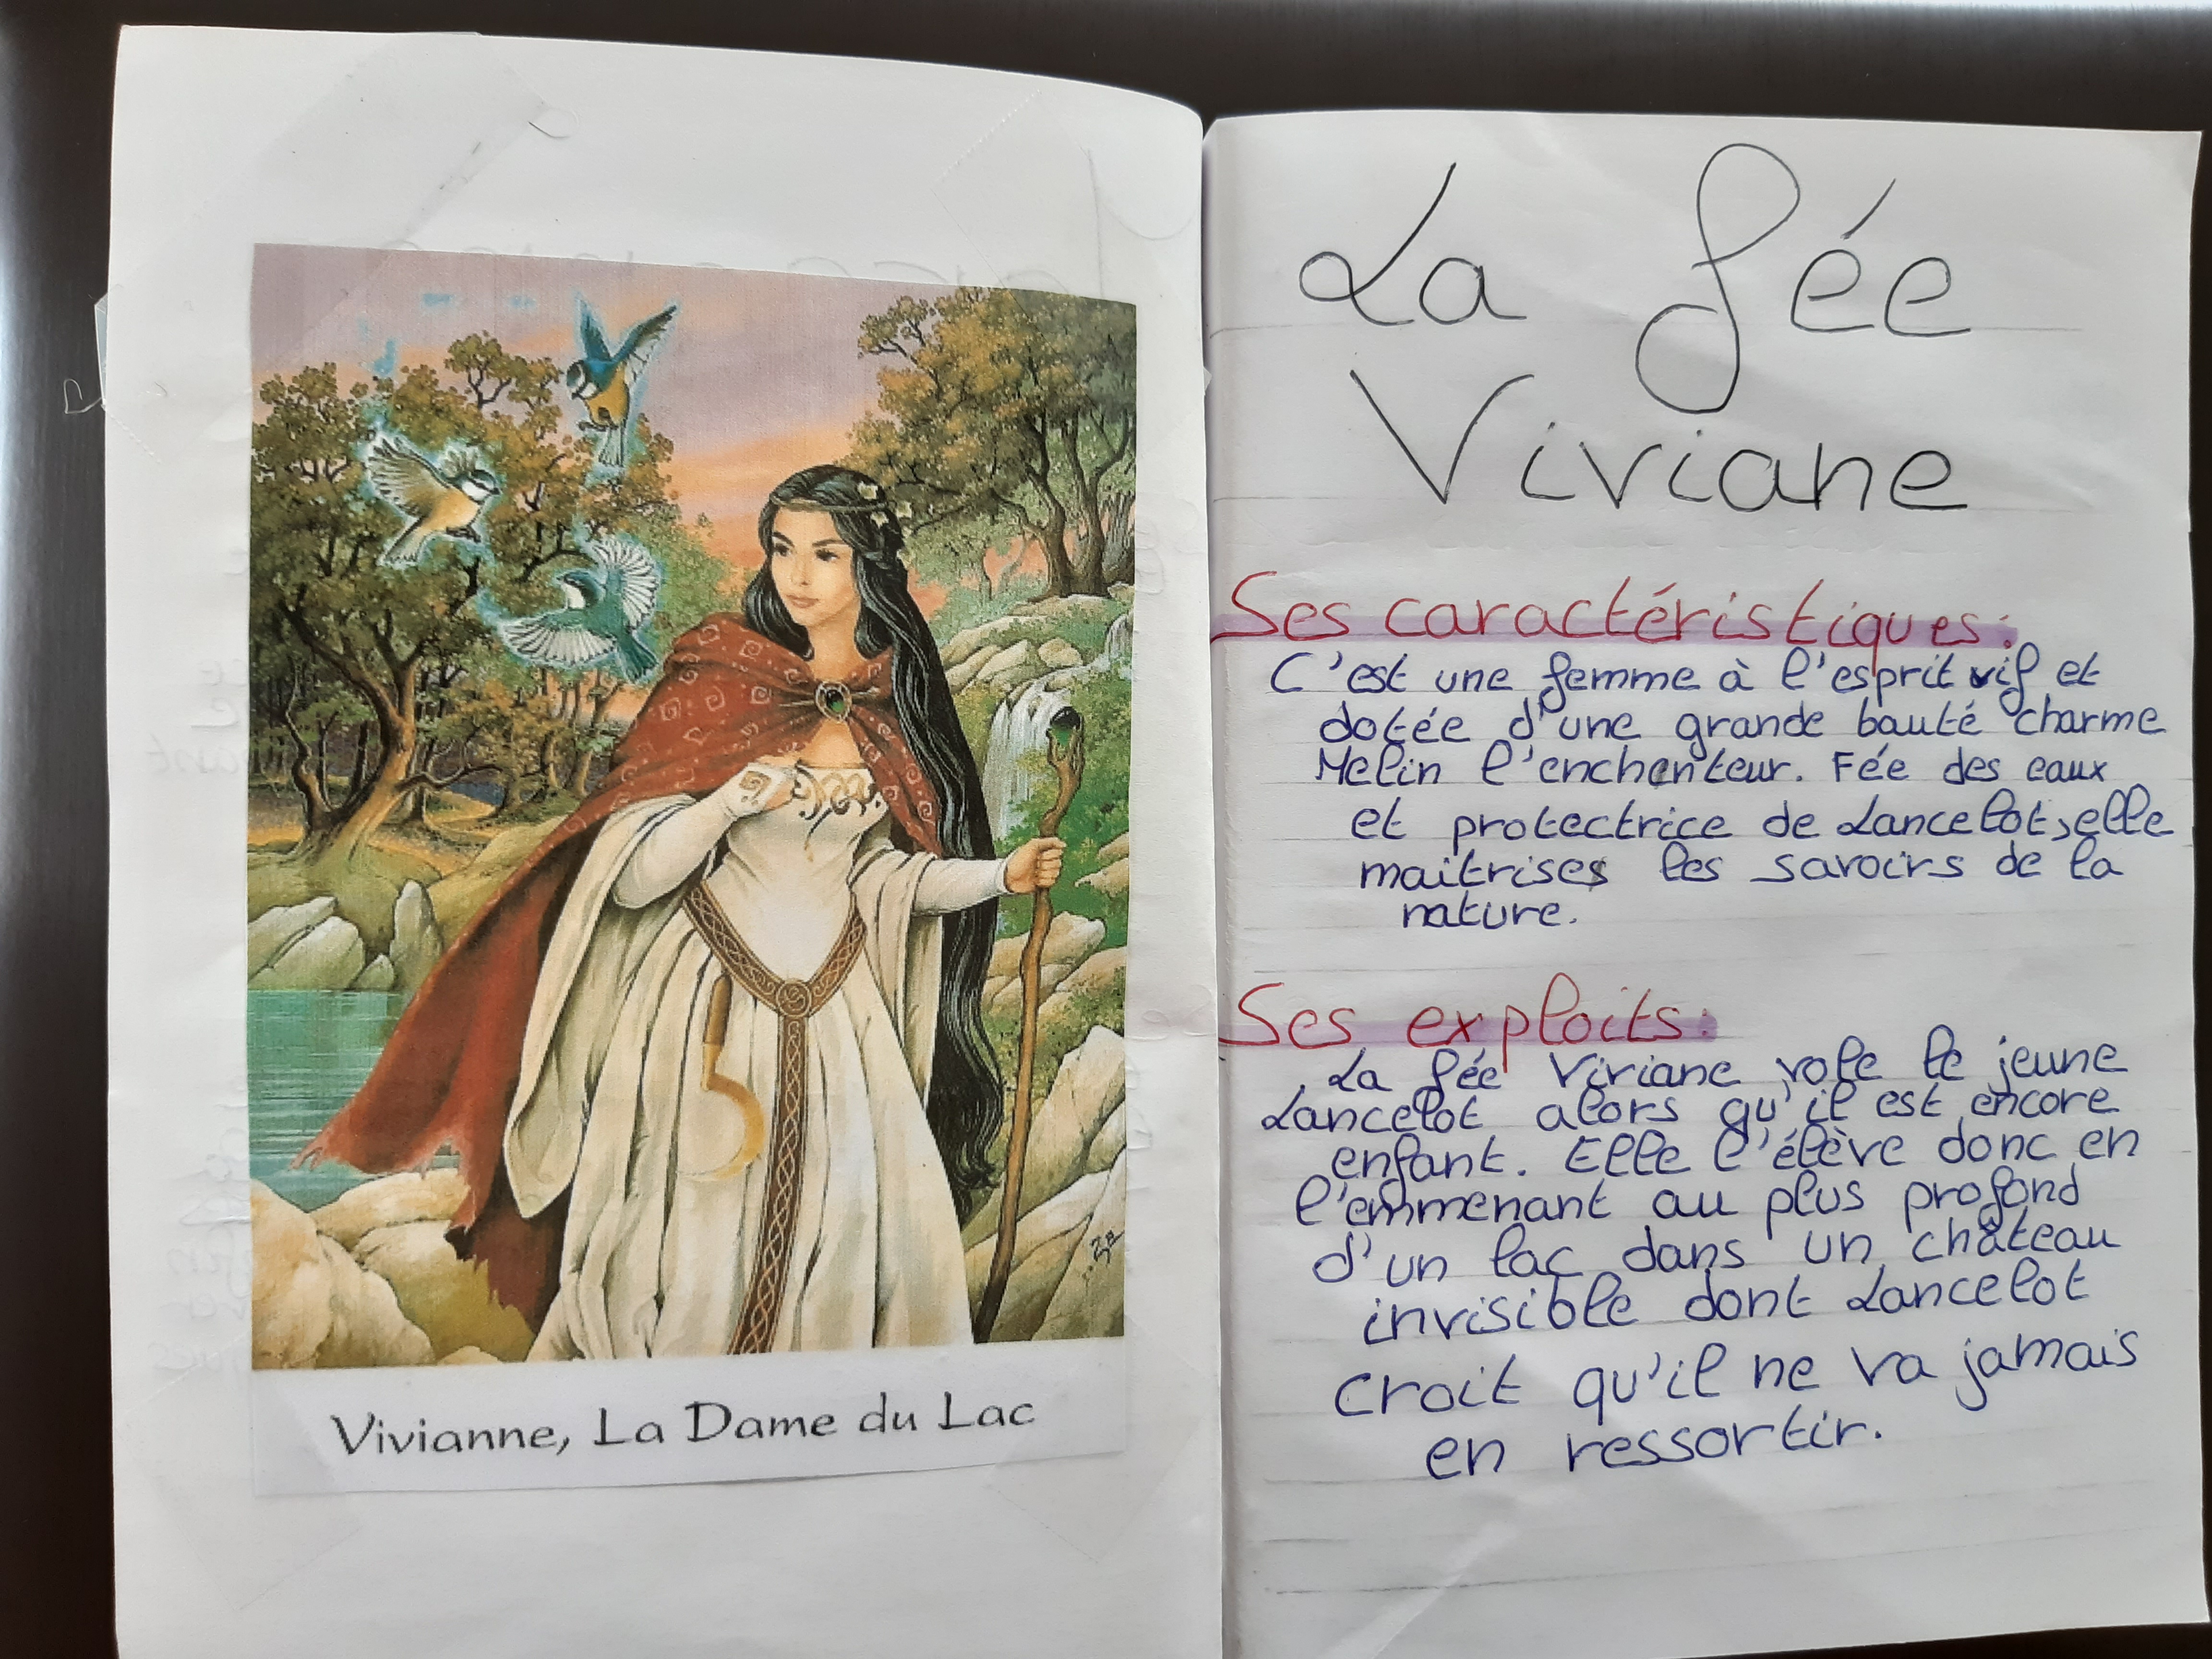 Vivianne, La Dame du Lac
La fée
Viviane
Ses caractéristiques:
C'est une femme à l'esprit vif et
dotée d'une grande bauté charme
Melin l'enchenteur. Fée des eaux
et protectrice de Lancelot, elle
maitrises les savoirs de la
nature.
Ses exploits:
La fée Viviane vole le jeune
Lancelot alors qu'il est encore
enfant. Elle l'élève donc en
l'emmenant au plus profond
d'un lac dans un château
invisible dont Lancelot
croit qu'il ne va jamais
en ressortir.